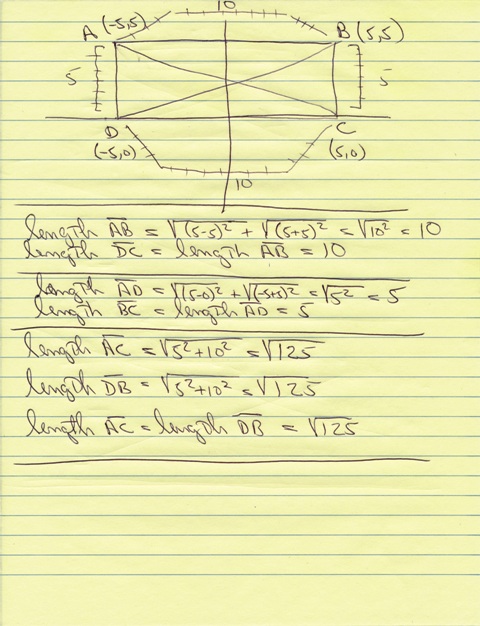 10
A (-5,5)
B (5,5)
5
5
D
C
(-5,0)
(5,0)
10
length A̅B̅ = √(5-5)² + √(5+5)² = √10² = 10
length D̅C̅ = length A̅B̅ = 10
length A̅D̅ = √(5-0)² + √(-5+5)² = √5² = 5
length B̅C̅ = length A̅D̅ = 5
length A̅C̅ = √5²+10² = √125
length D̅B̅ = √5²+10² = √125
length A̅C̅ = length D̅B̅ = √125